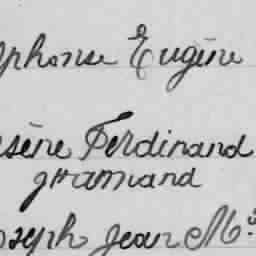 lphonse Eugène
sène Ferdinand
gttamand
oseph Jean M.